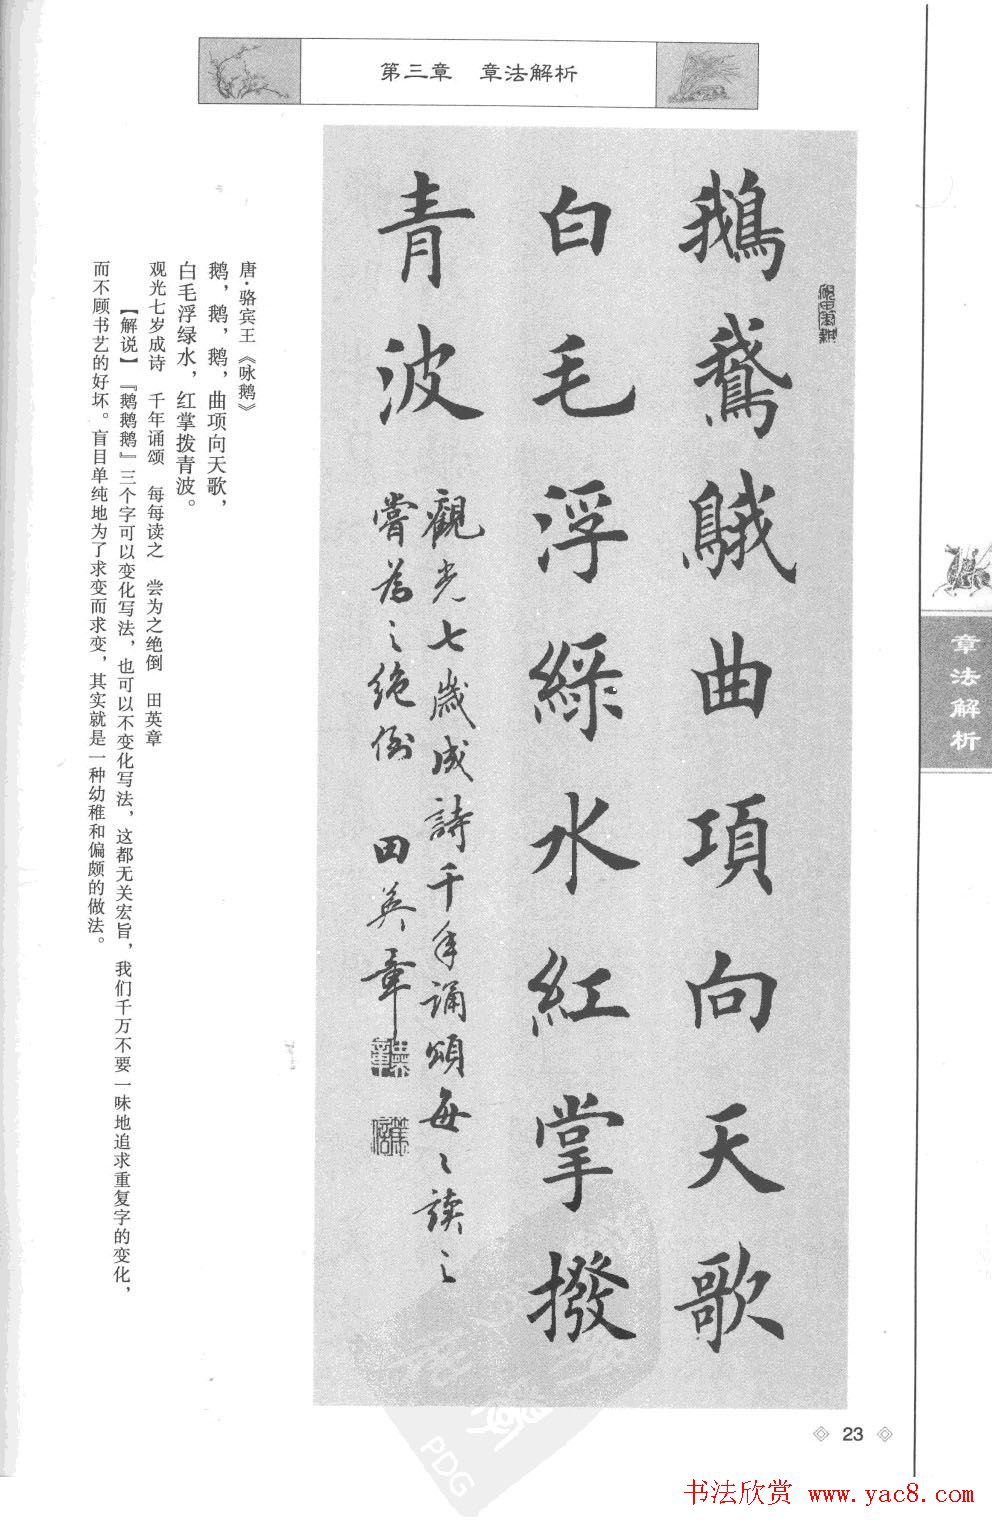 第三章 章法解析
鵝鵞䳘曲項向天歌
白毛浮綠水紅掌撥
青波
觀光七歲成詩千年誦頌每々读之
嘗為之绝倒 田英章
唐·骆宾王《咏鹅》
鹅，鹅，鹅，曲项向天歌，
白毛浮绿水，红掌拨青波。
观光七岁成诗 千年诵颂 每每读之 尝为之绝倒 田英章
【解说】『鹅鹅鹅』三个字可以变化写法，也可以不变化写法，这都无关宏旨，我们千万不要一味地追求重复字的变化，
而不顾书艺的好坏。盲目单纯地为了求变而求变，其实就是一种幼稚和偏颇的做法。
章法解析
23
PDG
书法欣赏 www.yac8.com